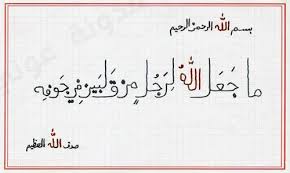 بسم الله الرحمن الرحيم
ما جعل الله لرجل من قلبين في جوفه
صدق الله العظيم